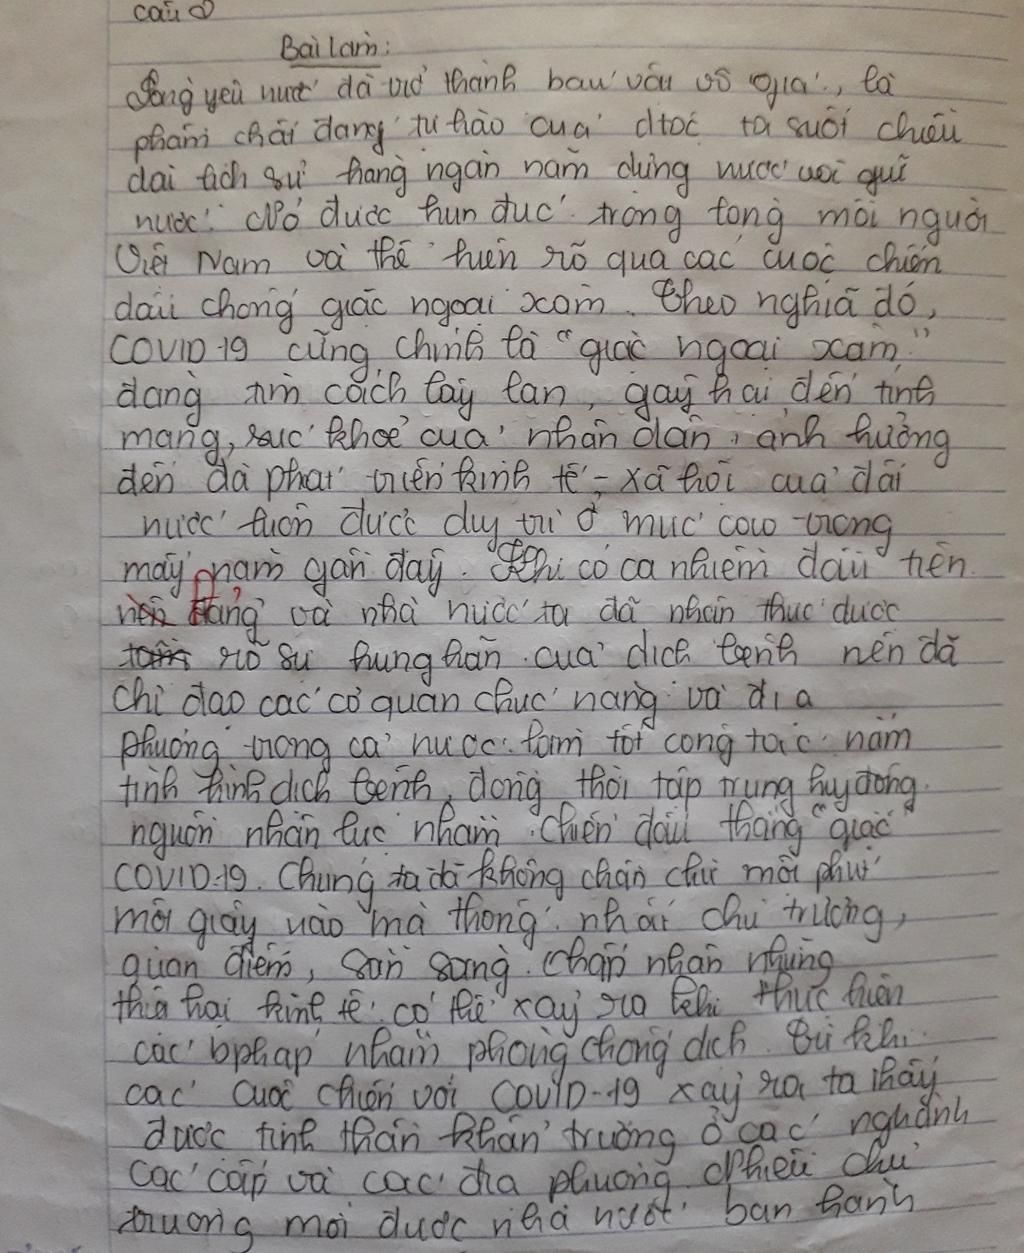 câu
Bài làm:
Lòng yêu nước đã trở thành báu vật vô giá, là
phẩm chất đáng tự hào của dtộc ta suốt chiều
dài lịch sử hàng ngàn năm dựng nước với giữ
nước. Nó được hun đúc trong lòng mỗi người
Việt Nam và thể hiện rõ qua các cuộc chiến
đấu chống giặc ngoại xâm. Theo nghĩa đó,
COVID-19 cũng chính là "giặc ngoại xâm"
đang tìm cách lây lan, gây hại đến tính
mạng, sức khoẻ của nhân dân, ảnh hưởng
đến đà phát triển kinh tế - xã hội của đất
nước luôn được duy trì ở mức cao trong
mấy năm gần đây. Khi có ca nhiễm đầu tiên
Đảng và nhà nước ta đã nhận thức được
rõ sự hung hãn của dịch bệnh nên đã
chỉ đạo các cơ quan chức năng và địa
phương trong cả nước làm tốt công tác nắm
tình hình dịch bệnh, đồng thời tập trung huy động
nguồn nhân lực nhằm chiến đấu thắng "giặc"
COVID-19. Chúng ta đã không chần chừ một phút
một giây nào mà thống nhất chủ trương,
quan điểm, sẵn sàng chấp nhận những
thiệt hại kinh tế có thể xảy ra khi thực hiện
các bpháp nhằm phòng chống dịch. Từ khi
các cuộc chiến với COVID-19 xảy ra, ta thấy
được tinh thần khẩn trương ở các nghành
các cấp và các địa phương. Nhiều chủ
trương mới được nhà nước ban hành